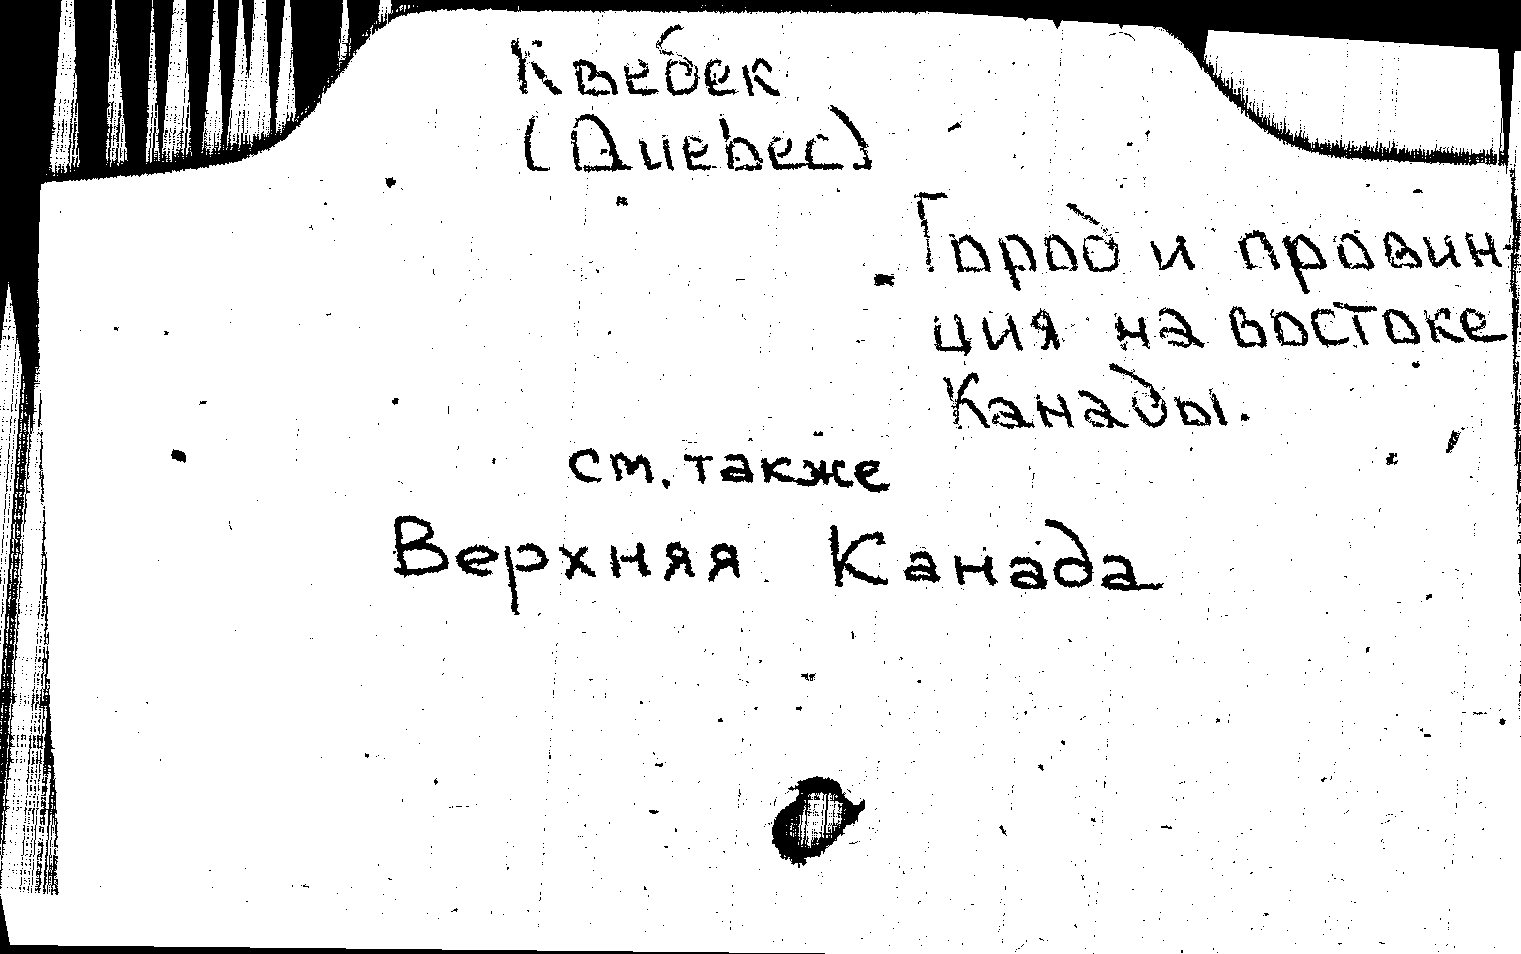 Квебек
(Quebec)
Город и провин-
ция на востоке
Канады.
см. также
Верхняя Канада